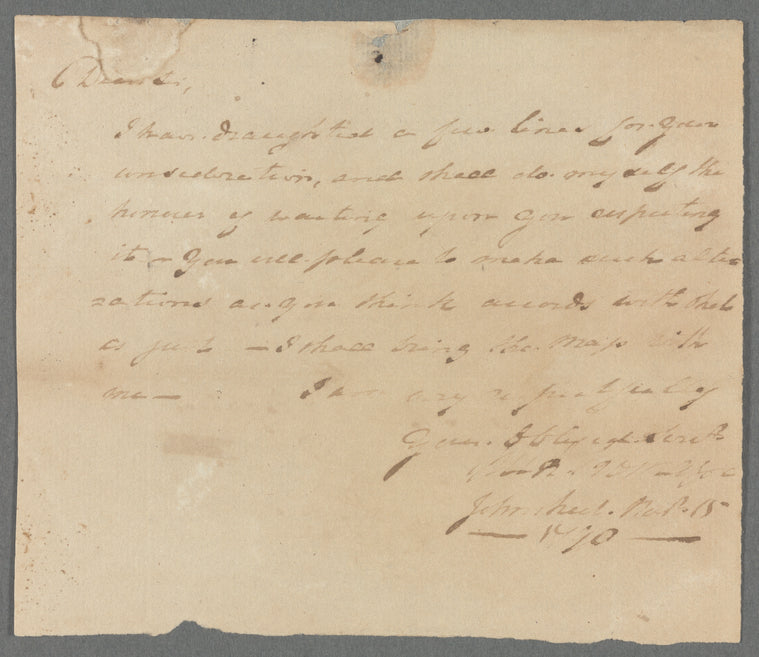 Dear Sir,
I have draughted a few lines for your
consideration, and shall do myself the
honour of waiting upon you respecting
it – You will please to make such alte
rations as you think accords with that
is just – I shall bring the Map with
me – I am very respectfully
Your Obliged Servt
John Street. No. 15
1790